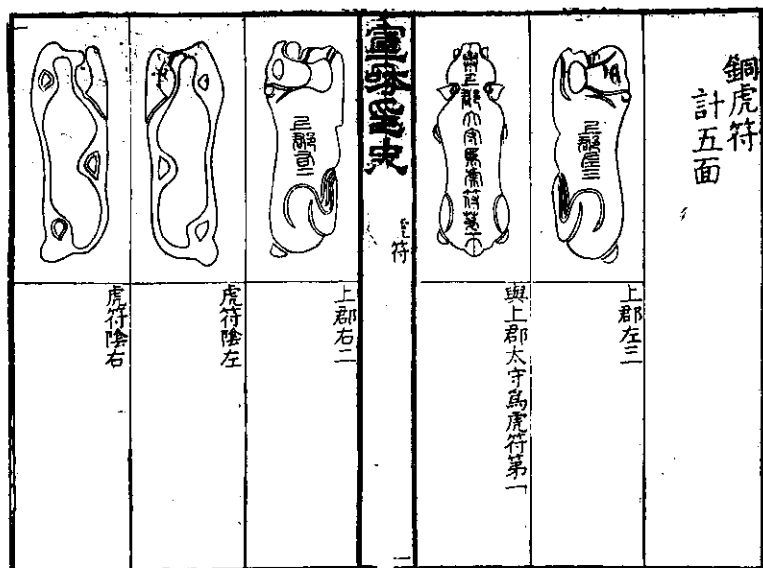 銅虎符
計五面
上郡左三
上郡左三
與上郡太守爲虎符第一
與上郡太守爲虎符第一
符
一
上郡右二
上郡右二
虎符陰左
虎符陰右